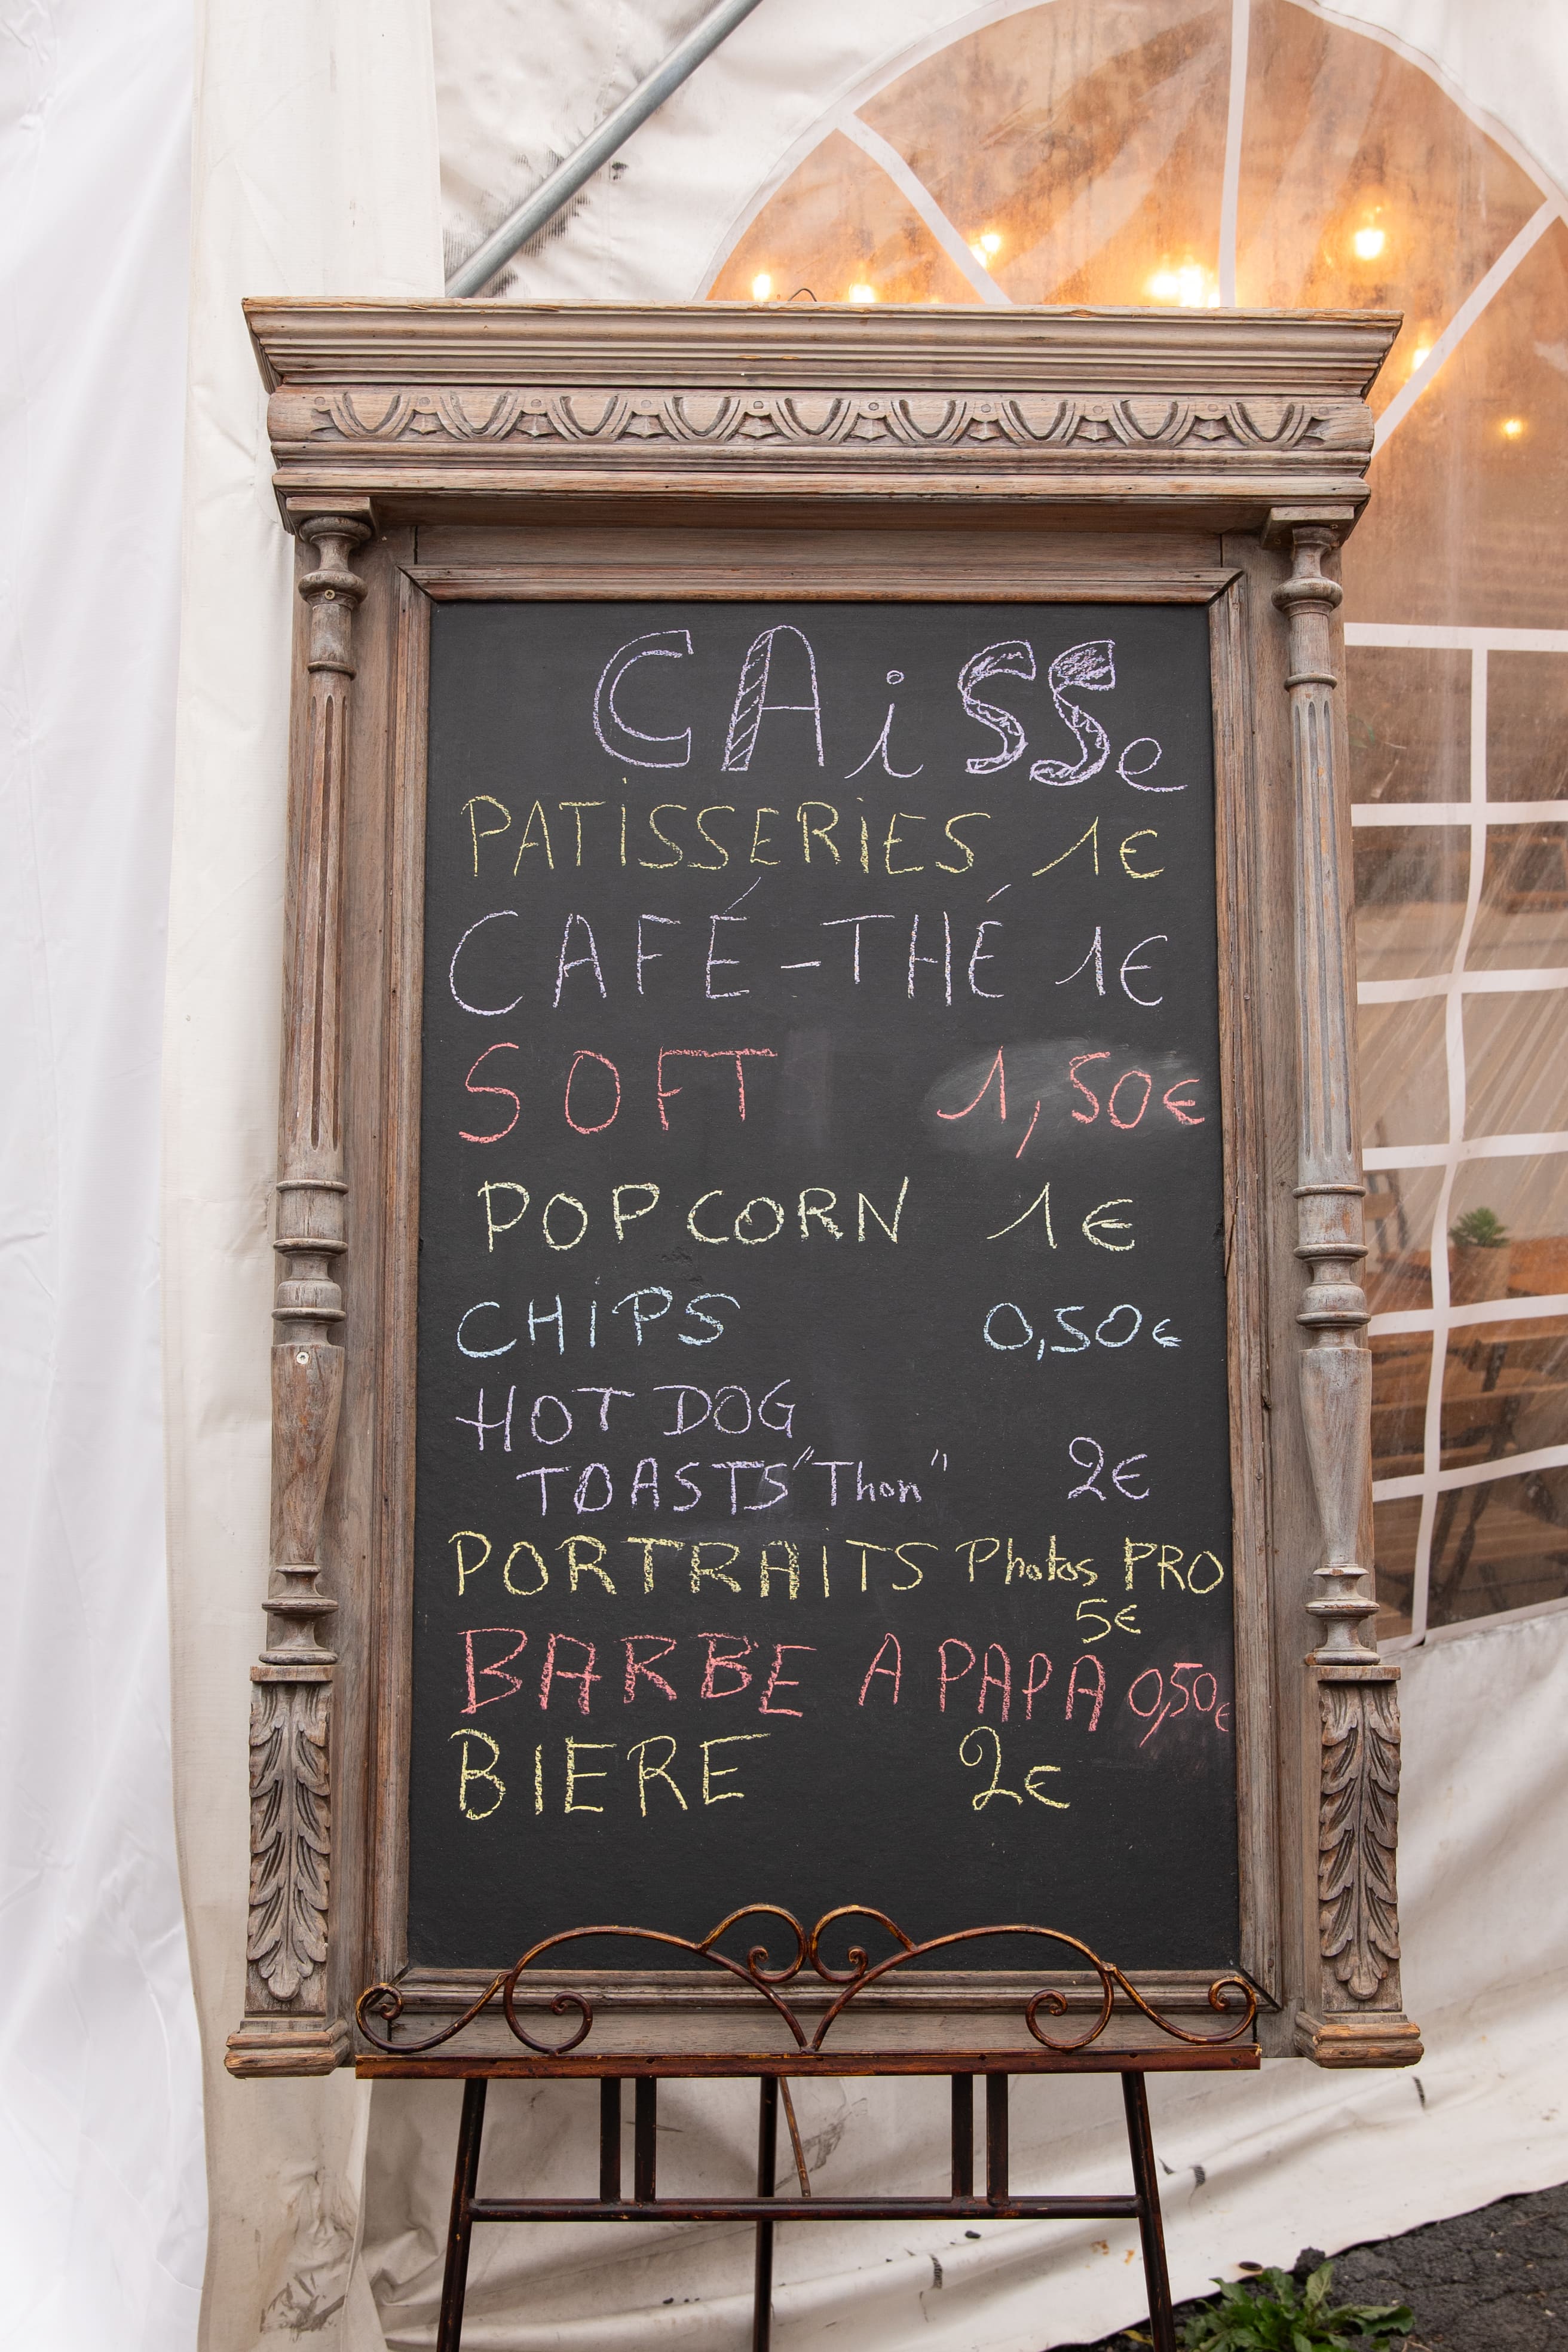 CAiSSe
PATiSSERiES 1€
CAFÉ-THÉ 1€
SOFT 1,50€
POP CORN 1€
CHiPS 0,50€
HOT DOG
TOASTS "Thon" 2€
PORTRAITS Photos PRO
5€
BARBE A PAPA 0,50€
BIERE 2€